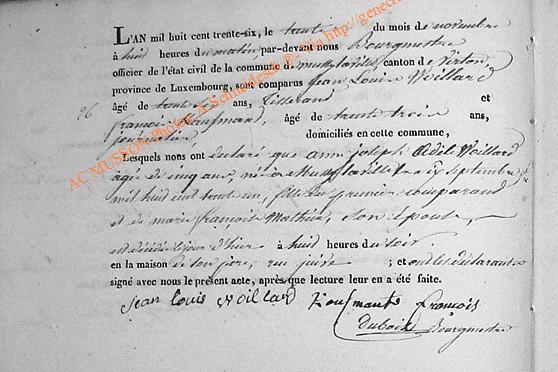 L'AN mil huit cent trente-six, le trente du mois de novembre
à huit heures du matin par-devant nous Bourgmestre
officier de l'état civil de la commune de Mussy-la-ville, canton de Virton,
province de Luxembourg, sont comparus Jean Louis Woillard
96 âgé de ans, Tisserand et
françois âgé de trente trois ans,
journalier domiciliés en cette commune,
Lesquels nous ont déclaré que anne joseph Adel Woillard
agée de cinq ans, née à Mussy-la-ville le septembre
mil huit cent trente un, fille du premier comparant
et de marie françoise Mathieu, son épouse,
est décédée le jour d'hier à huit heures du soir
en la maison de son père, rue ; et ont les déclarants
signé avec nous le présent acte, après que lecture leur en a été faite.
jean Louis Woillard françois
Dubois Bourgmestre
AC MUSSON Philippe A Schneider (c) http://genech